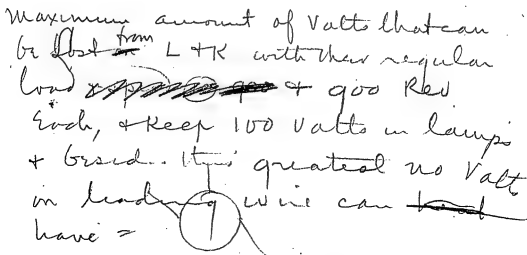 Maximum amount of Volts that can
be lost from L & K with their regular
load & 900 Rev
Each, & Keep 100 Volts in lamps
& besid.. greatest no Volts
in leading wire can
have =